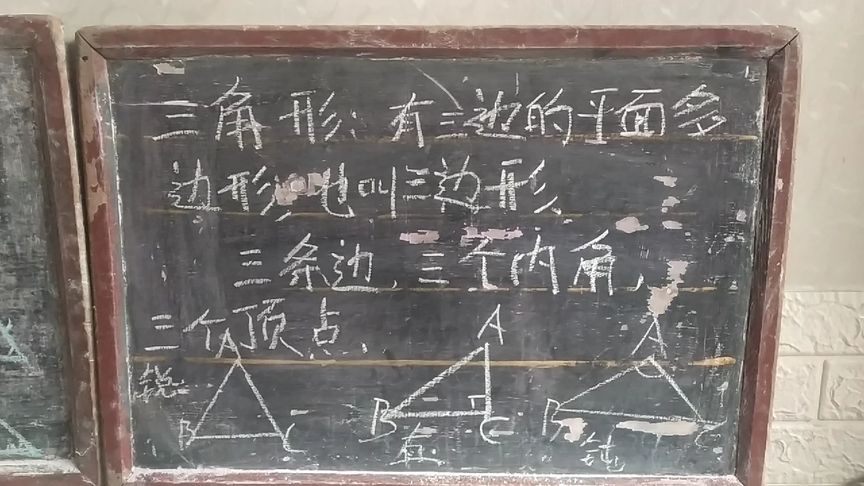 三角形：有三边的平面多
边形，也叫三边形，
三条边，三个内角，
三个顶点，
锐 A B C
A B C 直
A B C 钝